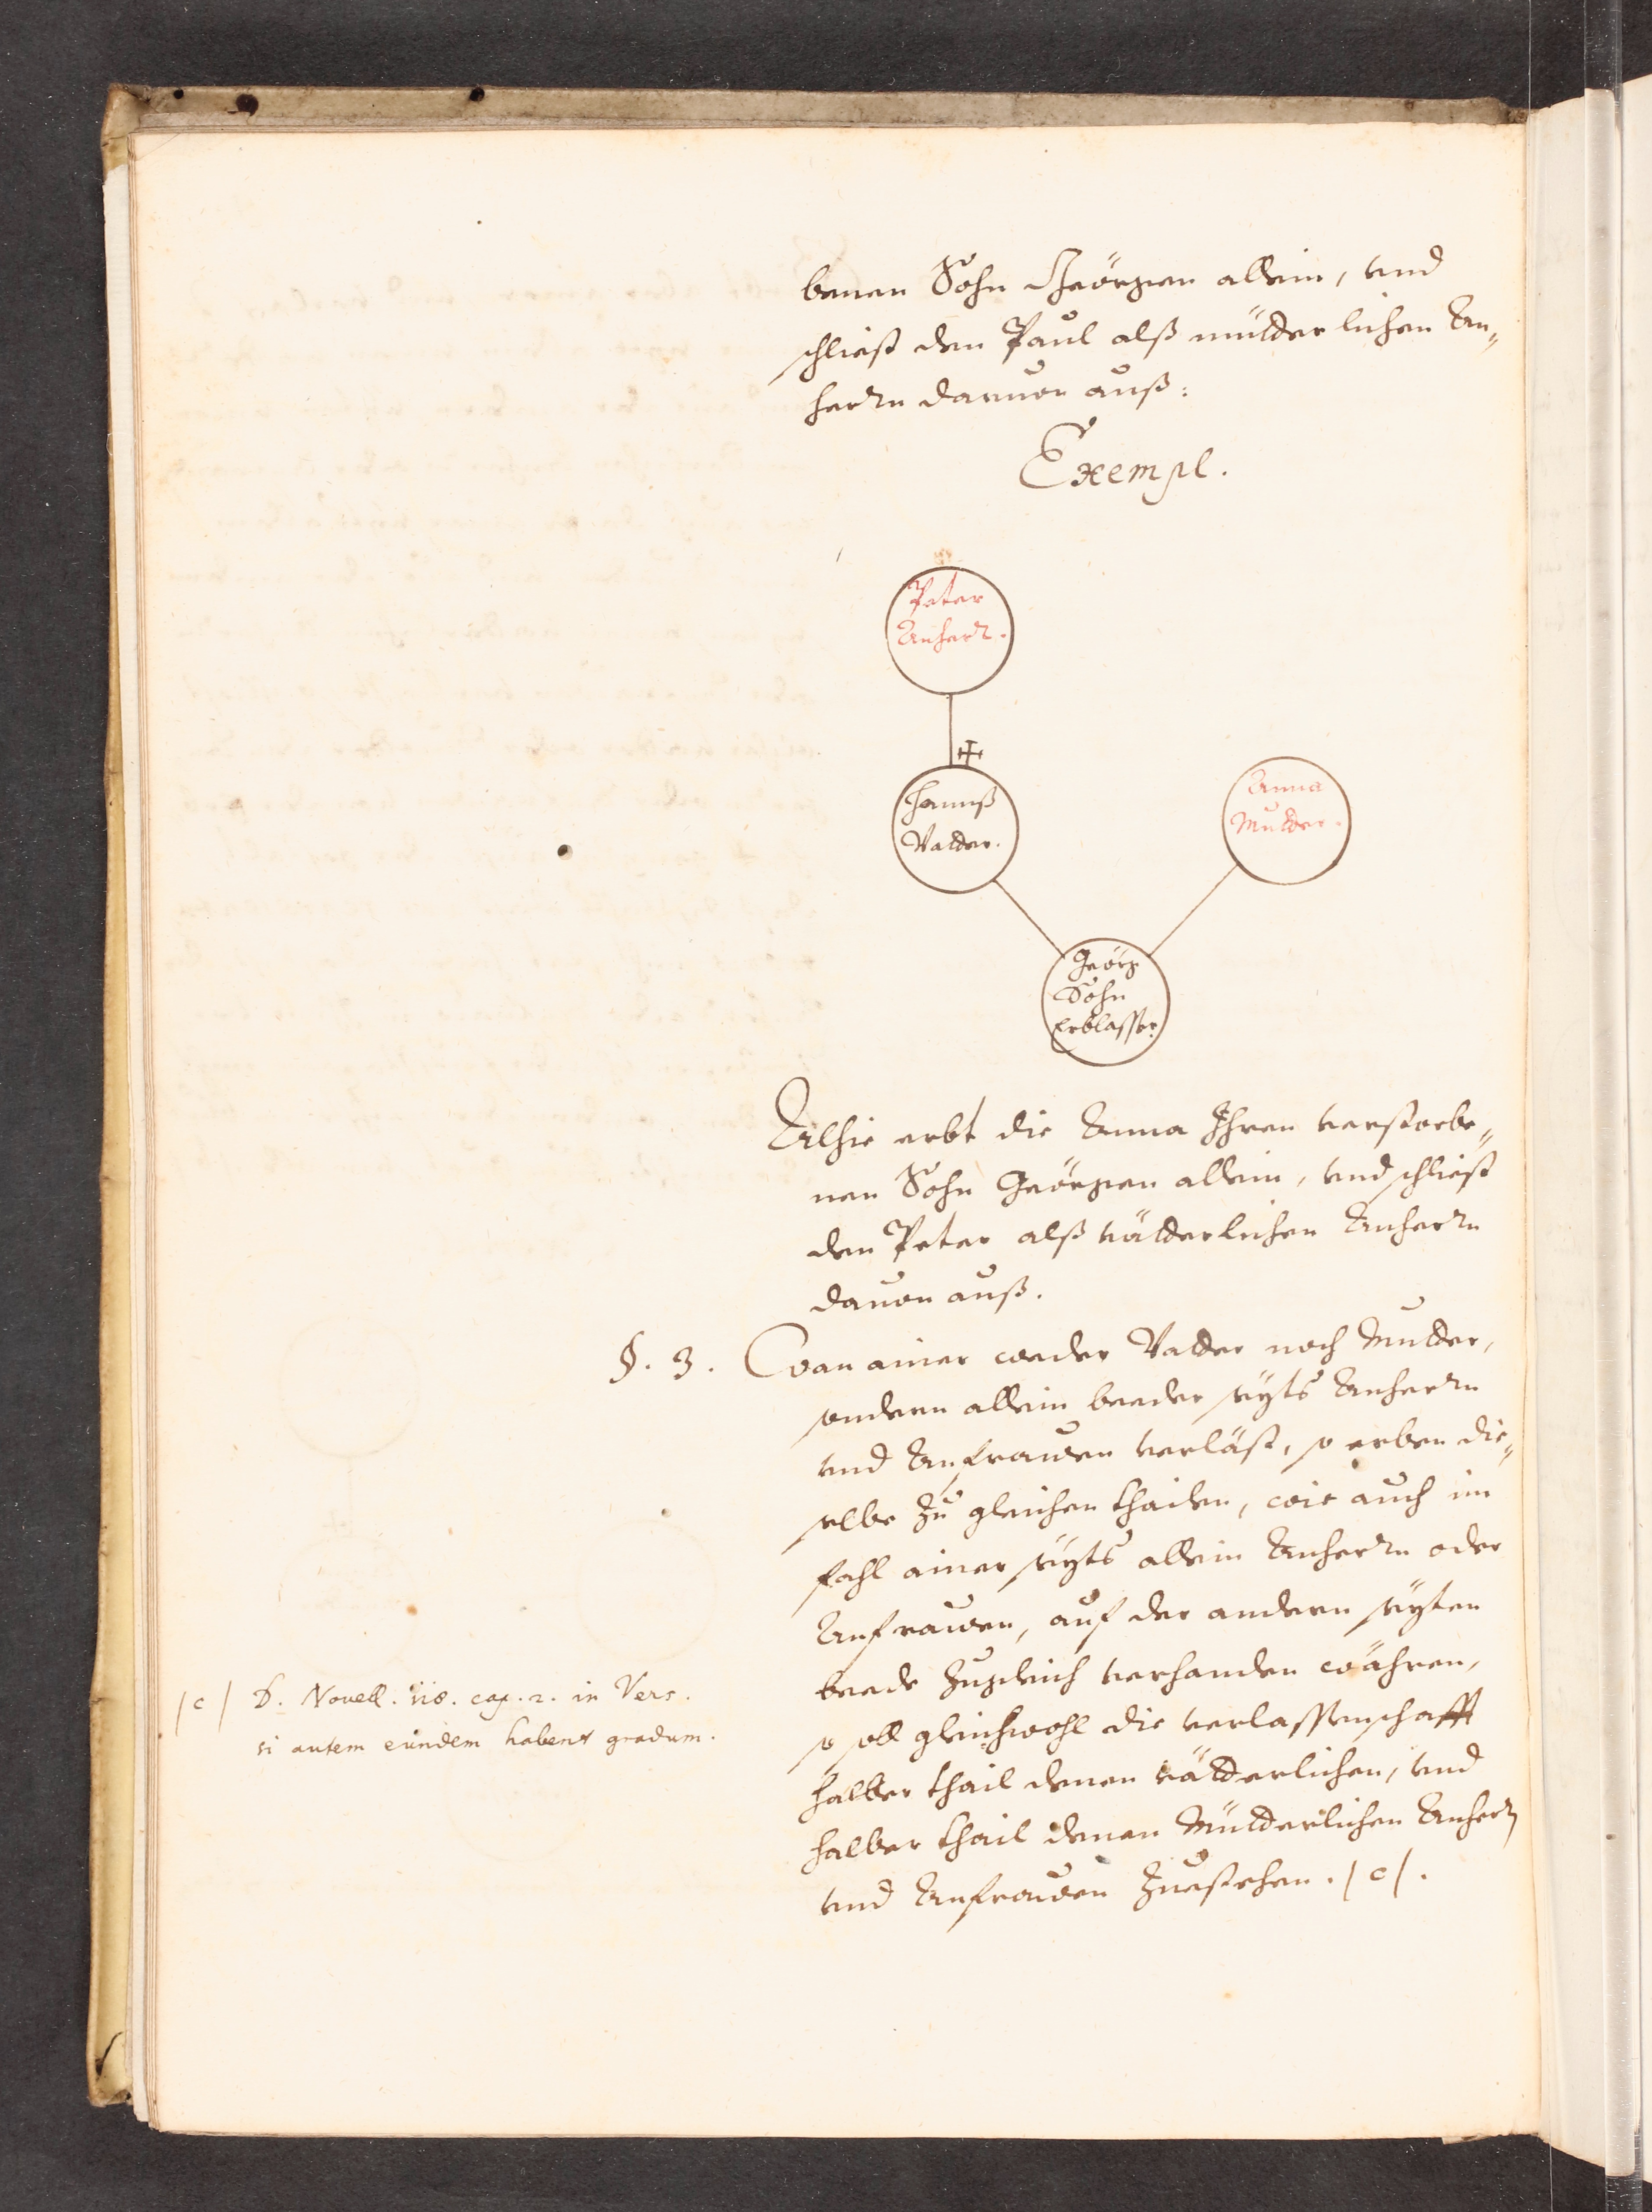 benen Sohn Geörgen allein, vnd
schliest den Paul alß müetterlichen An„
herrn daruon auß:
Exempl.
Peter
Anherr.
Hannß
Vatter.
Anna
Muetter.
Geörg
Sohn
Erblasser.
Alhie erbt die Anna Ihren verstorbe„
nen Sohn Geörgen allein, vnd schliest
den Peter alß vätterlichen Anherrn
dauon auß.
§. 3. Wan ainer weder Vatter noch Mutter,
sondern allein beeder seyts Anherrn
vnd Anfrawen verläst, so erben die„
selbe zu gleichen thailen, wie auch im
fahl ainer seyts allein Anherrn oder
Anfrawen, auf der andern seyten
beede zugleich verhanden währen,
so soll gleichwohl die verlassenschafft
halber thail denen vätterlichen, vnd
halber thail denen Mütterlichen Anherrn
vnd Anfrawen zuestehen. /c/.
/c/ d. Nouell. 118. cap. 2. in Vers.
si autem eundem habent gradum.